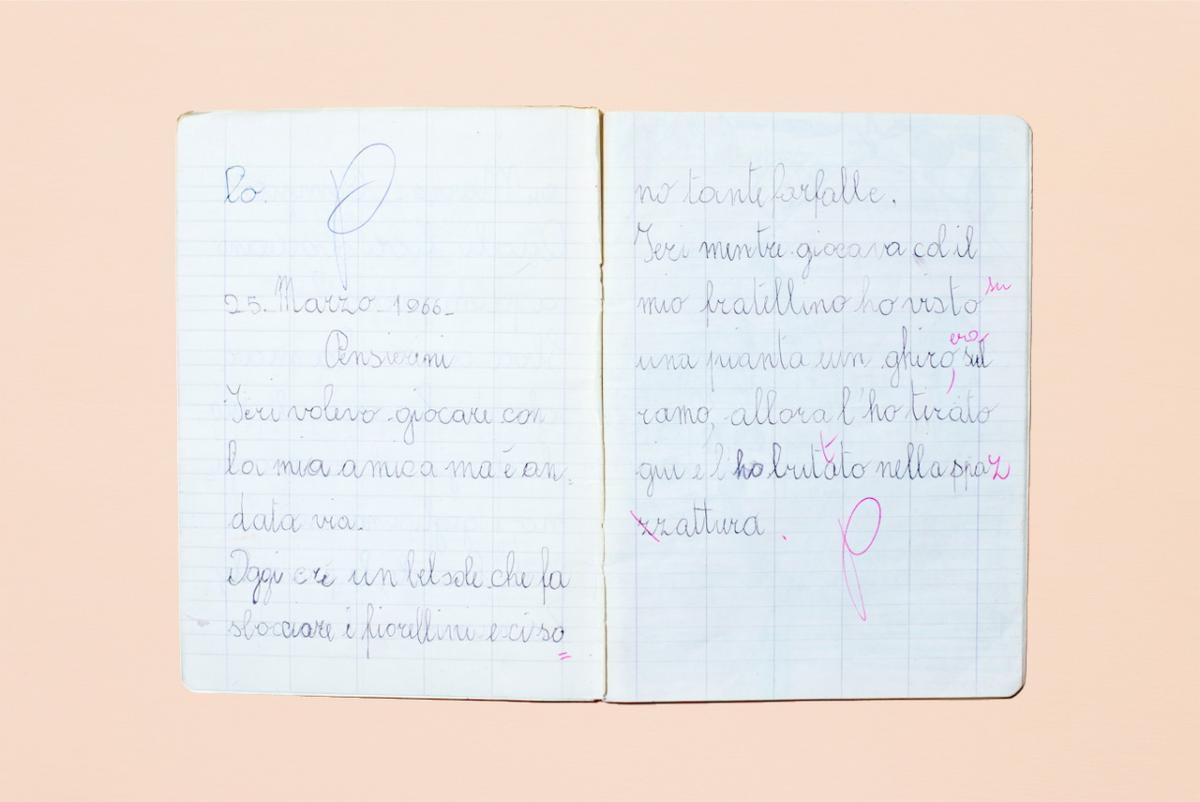 lo.
P
25. Marzo - 1966 -
Pensierini
Ieri volevo giocare con
la mia amica ma è an=
data via.
Oggi c'è un bel sole che fa
sbocciare i fiorellini e ci so
=
no tante farfalle.
Ieri mentre giocava col il
mio fratellino ho visto su
una pianta un ghiro, era sul
ramo, allora l'ho tirato
giu e l'ho butato nella spaz
t
zzattura.
P